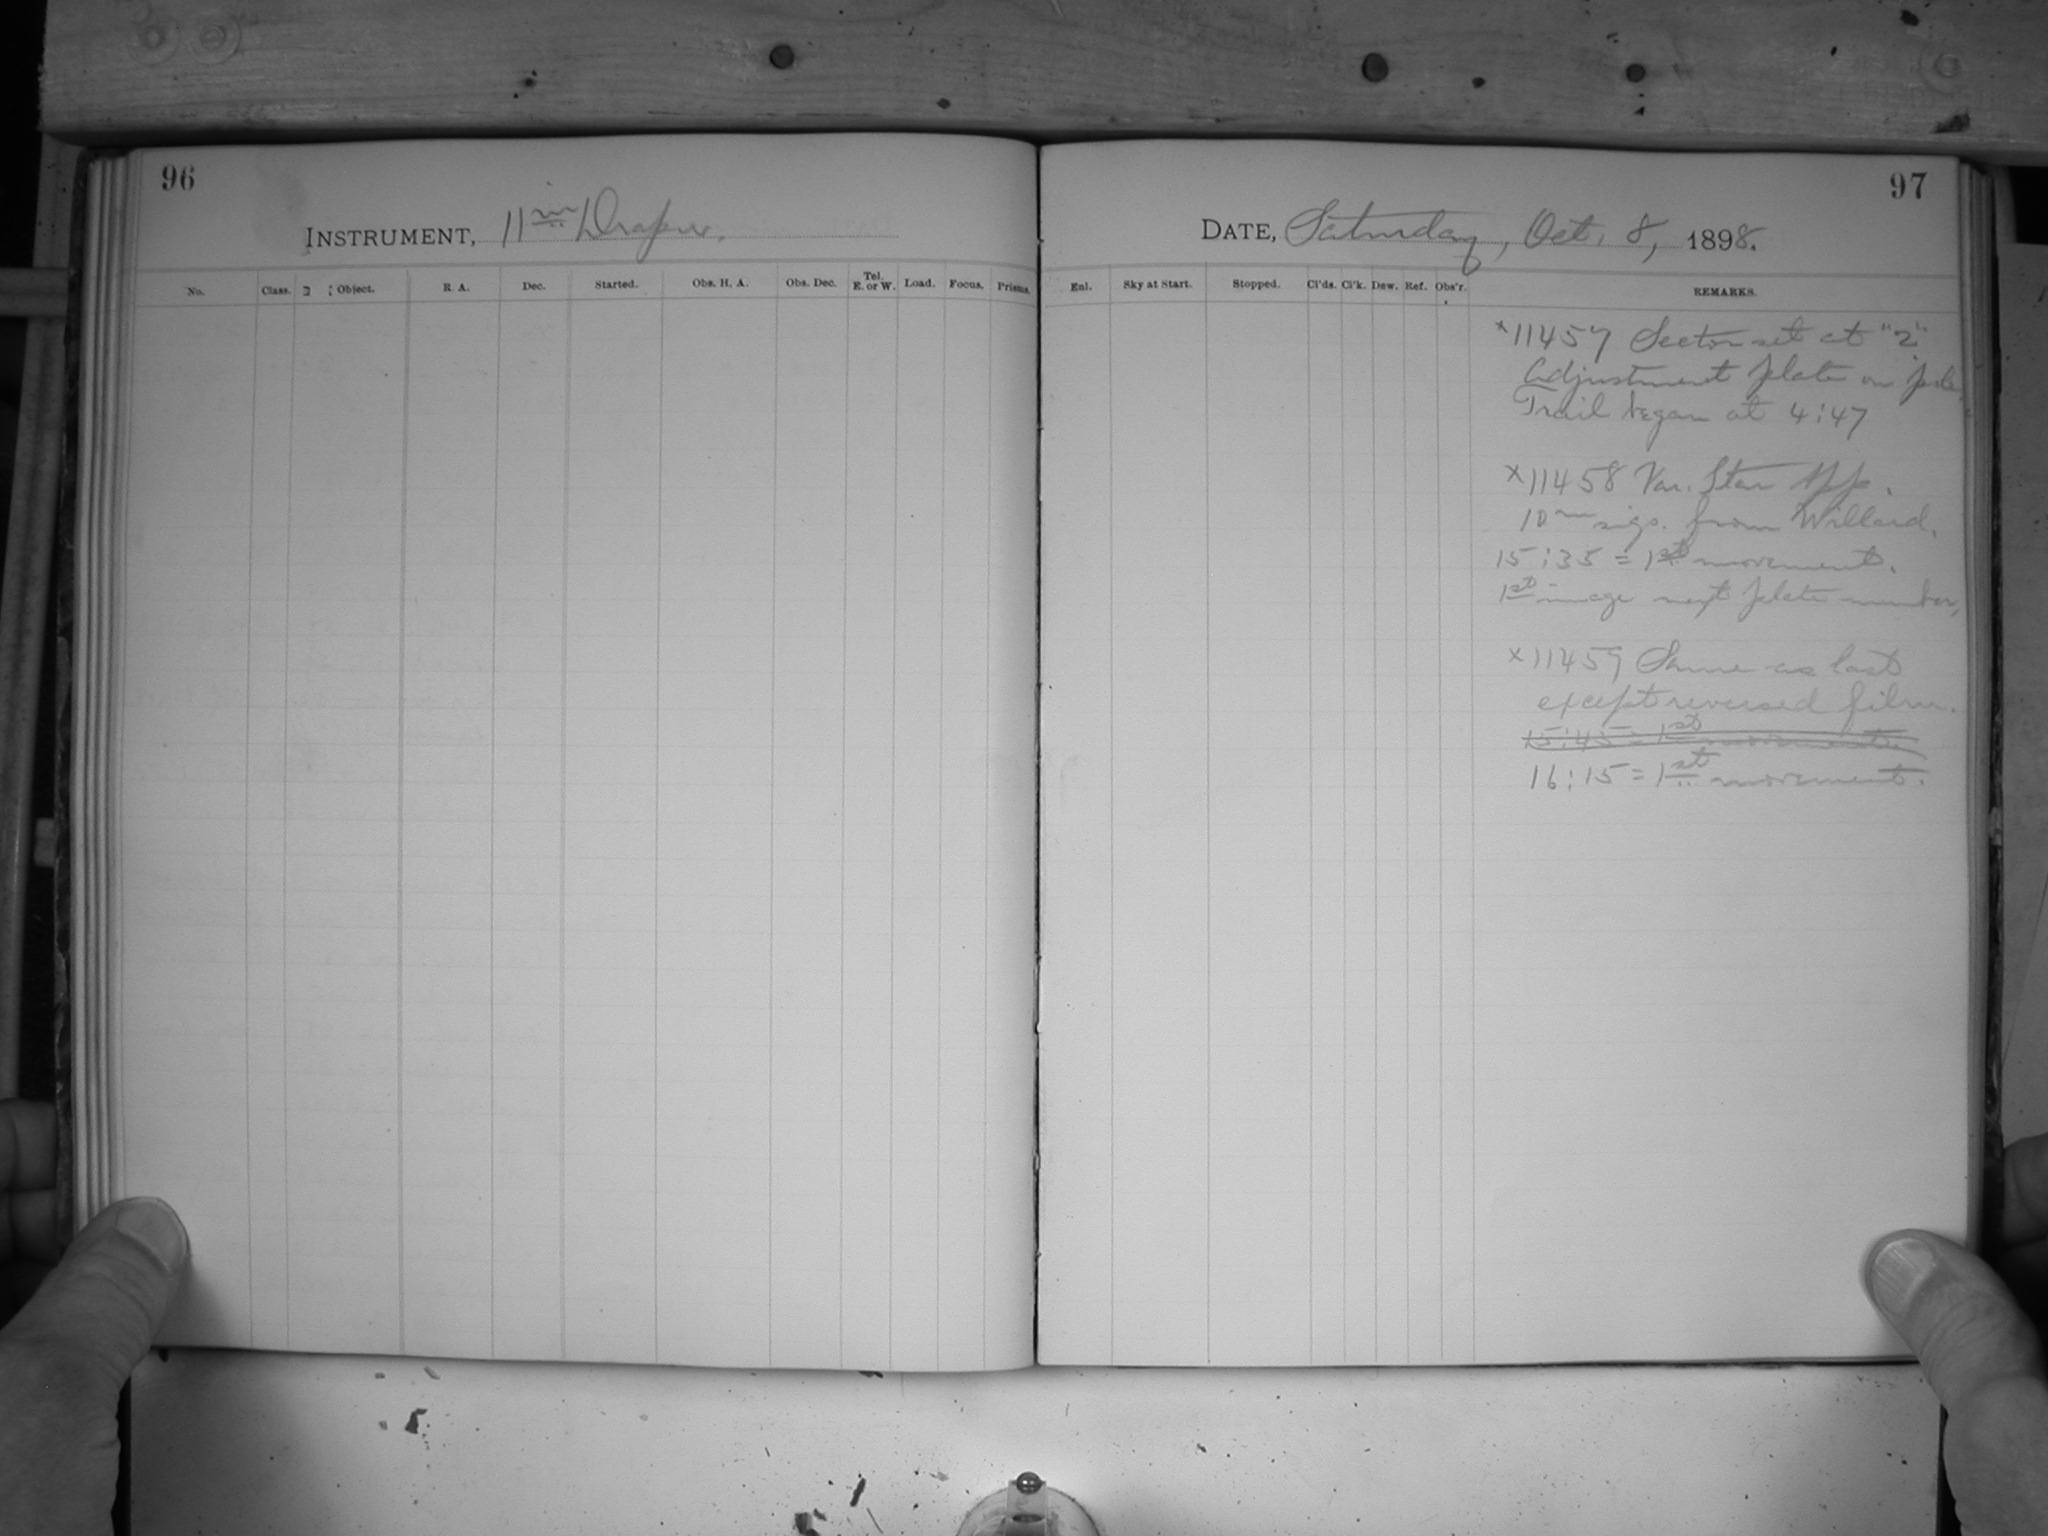 96
97
INSTRUMENT, 11in Draper.
DATE, Saturday, Oct. 8, 1898.
No. Class. Object. R. A. Dec. Started. Obs. H. A. Obs. Dec. Tel. E. or W. Load. Focus. Prisms.
Enl. Sky at Start. Stopped. Cl'ds. Cl'k. Dew. Ref. Obs'r. REMARKS.
x11457 Sector set at "2"
Adjustment plate on pole.
Trail began at 4:47
x11458 Var. Star App.
10m sigs. from Willard.
15:35 = 1st movement.
1st image next plate number,
x11459 Same as last
except reversed film.
15:45 = 1st movement.
16:15 = 1st movement.